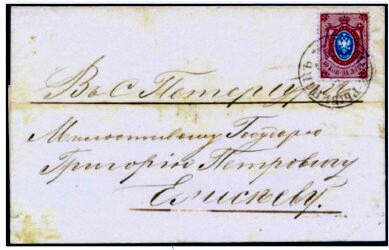 Въ С Петерб
Милостивому Государю
Григорію Петровичу
Елисѣеву.